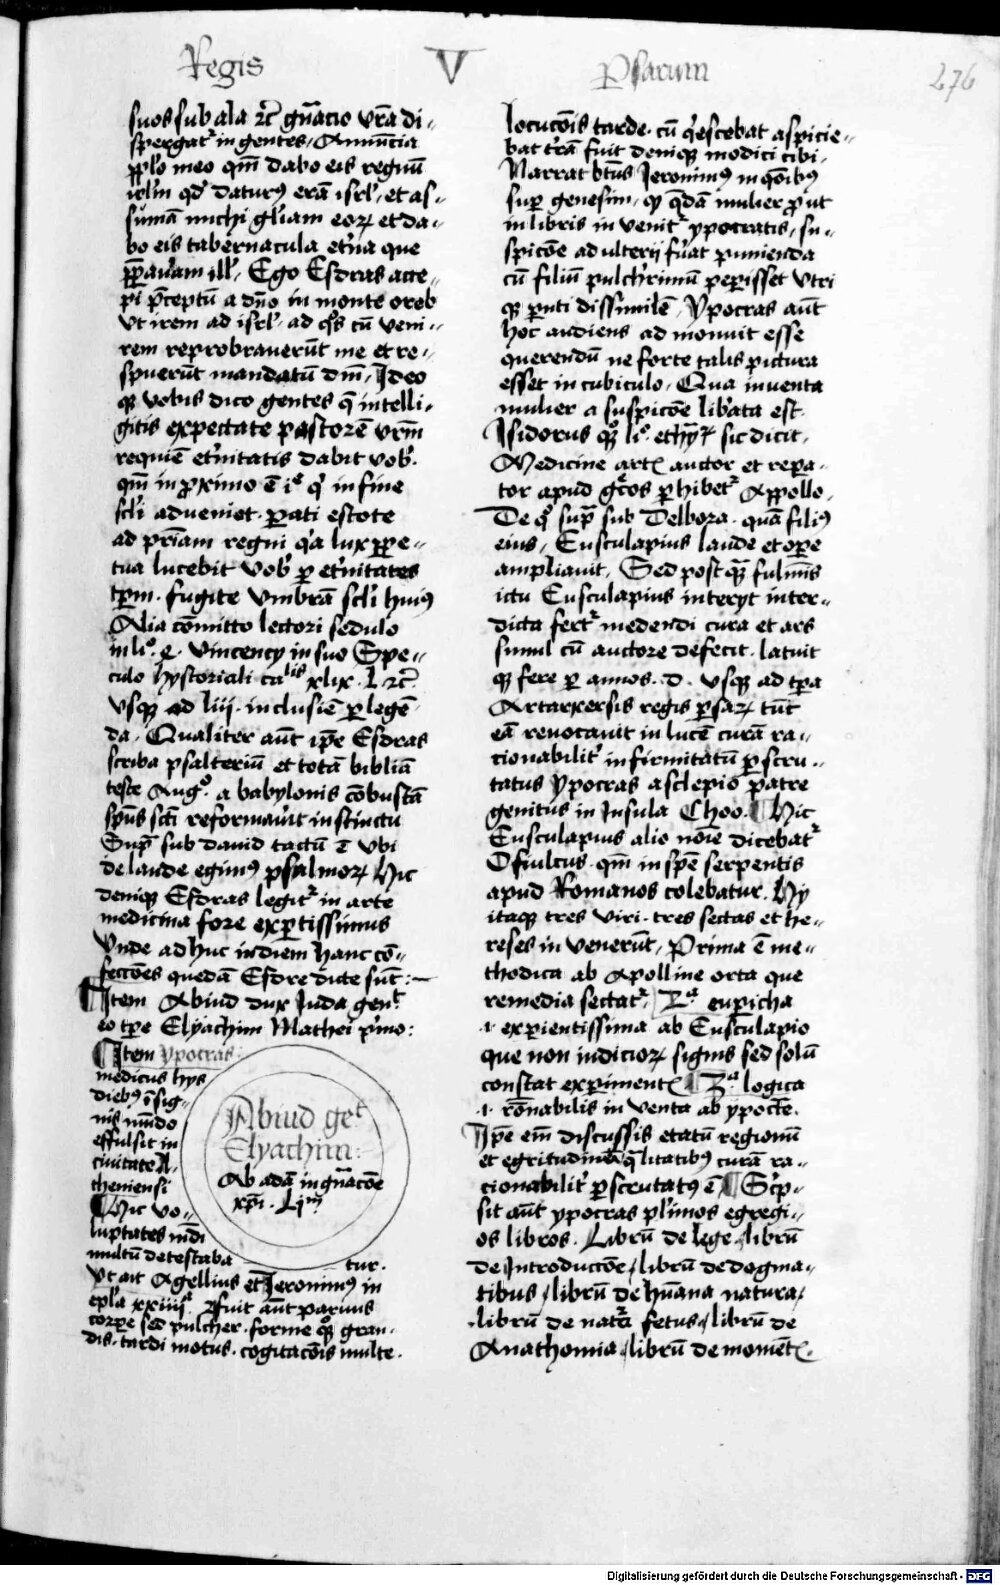 Regis V Persarum 276
suos sub ala zc̄ gn̄acio vr̄a di-
spergat᷑ in gentes Annūcia
pplo meo qm̄ dabo eis regnū
irlm̄ qd̕ datur9 erā isrl̕ et as-
sumā michi gl̕iam eoꝝ et da-
bo eis tabernacula et̕na que
p̄p̄au̕am ill̕ Ego Esdras acce-
pi p̄ceptū a dn̄o in monte oreb
vt irem ad isrl̕ ad q̊s cū veni-
rem reprobrauerūt me et re-
spuerūt mandatū dn̄i Ideo
qꝫ vobis dico gentes q̄ intelli-
gitis expectate pastorē vr̄m
requiē et̕nitatis dabit vob̕
qm̄ in ꝓximo ē is q̕ in fine
scl̕i adueniet ꝑati estote
ad p̄miam regni q̕a lux ꝑpe-
tua lucebit vob̕ ꝑ et̕nitates
tꝑm fugite vmbrā scl̕i hui9
Alia cōmitto lectori sedulo
in li̊ e Vincency in suo Spe-
culo hystoriali ca^lis xlix L zc̄
vsqꝫ ad liij inclusiē ꝑlegē
da Qualiter aūt ip̄e Esdras
scriba psalteriū et totā bibliā
teste Aug̊ a babylonis cōbustā
sp̄us sc̄ti reformau̕it instinctu
Sup̄ sub dauid tactū ē vbi
de laude egim9 psalmoꝝ Hic
deniqꝫ Esdras legit᷑ in arte
medicina fore exꝑtissimus
Vnde ad huc indiem hanc cō-
fecciones quedā Esdre dicte sūt
Item Abiud dux Iuda gen̄t
eo tꝑe Elyachim Mathei p̕mo
Item ypocras
medicus hys
dieb9 īsig-
nis mūdo
effulsit in
ciuitate A-
theniensi
Hic vo-
luptates mūdi
multū detestaba tur
Abiud ge^t
Elyachim
Ab adā in gn̄acōe
xp̄i Lj^m
Vt ait Agellius et Ieronim9 in
epl̕a xxiiij fuit aūt paruus
corꝑe sed pulcher forme qꝫ gran-
dis tardi motus cogitacōis multe
locucōis tarde cū q̕escebat aspicie-
bat t̕rā fuit deniqꝫ modici cibi
Narrat bt̄us Ieronim9 in q̄onib9
sup̄ genesim qꝫ q̄dā mulier ꝓut
in libris in venit᷑ ypocratis su-
spicōe ad ulterij fu̕at punienda
cū filiū pulch̕rimū peꝑisset vtri
qꝫ ꝑnti dissimilē Ypocras aūt
hoc audiens ad monuit esse
querendū ne forte talis pictura
esset in cubiculo Qua inuenta
mulier a suspicōe lib̕ata est
Isidorus qꝫ li̊ ethy᷑ sic dicit
Medicine art᷑ auctor et repa-
tor apud g̕cos ꝑhibet᷑ Appollo
De q̊ sup̄ sub Delbora quā fili9
eius Eusculapius laude et oꝑe
ampliauit Sed postq̄ꝫ fulmīs
ictu Eusculapius interyt inter-
dicta fert᷑ medendi cura et ars
simul cū auctore defecit latuit
qꝫ fere ꝑ annos d vsqꝫ ad tꝑa
Artarxersis regis ꝑsaꝝ tūc
eā reuocauit in lucē curā ra-
cionabilit̕ infirmitatū ꝑscru-
tatus ypocras asclepio patre
genitus in Insula Choo Hic
Eusculapius alio nōie dicebat᷑
Ofiulcus qm̄ in sp̄e serpentis
apud Romanos colebatur Hy
itaqꝫ tres viri tres sectas et he-
reses in venerūt Prima ē me-
thodica ab Apolline orta que
remedia sectat᷑ 2^a eupicha
.i. exꝑientissima ab Eusculapio
que non iudicioꝝ signis sed solū
constat exꝑiment᷑ 3^a logica
.i. rōnabilis in venta ab ypoc̄te
Ip̄e em̄ discussis etatū regionū
et egritudinū q̄litatib9 curā ra-
cionabilit̕ ꝑscrutat9 ē Sc̕p-
sit aūt ypocras pl̕imos egregi-
os libros Librū de lege librū
de Introductōe librū de dogma-
tibus librū de hūana natura
librū de nat᷑a fetus librū de
Anathomia librū de momēt᷑
Digitalisierung gefördert durch die Deutsche Forschungsgemeinschaft - DFG